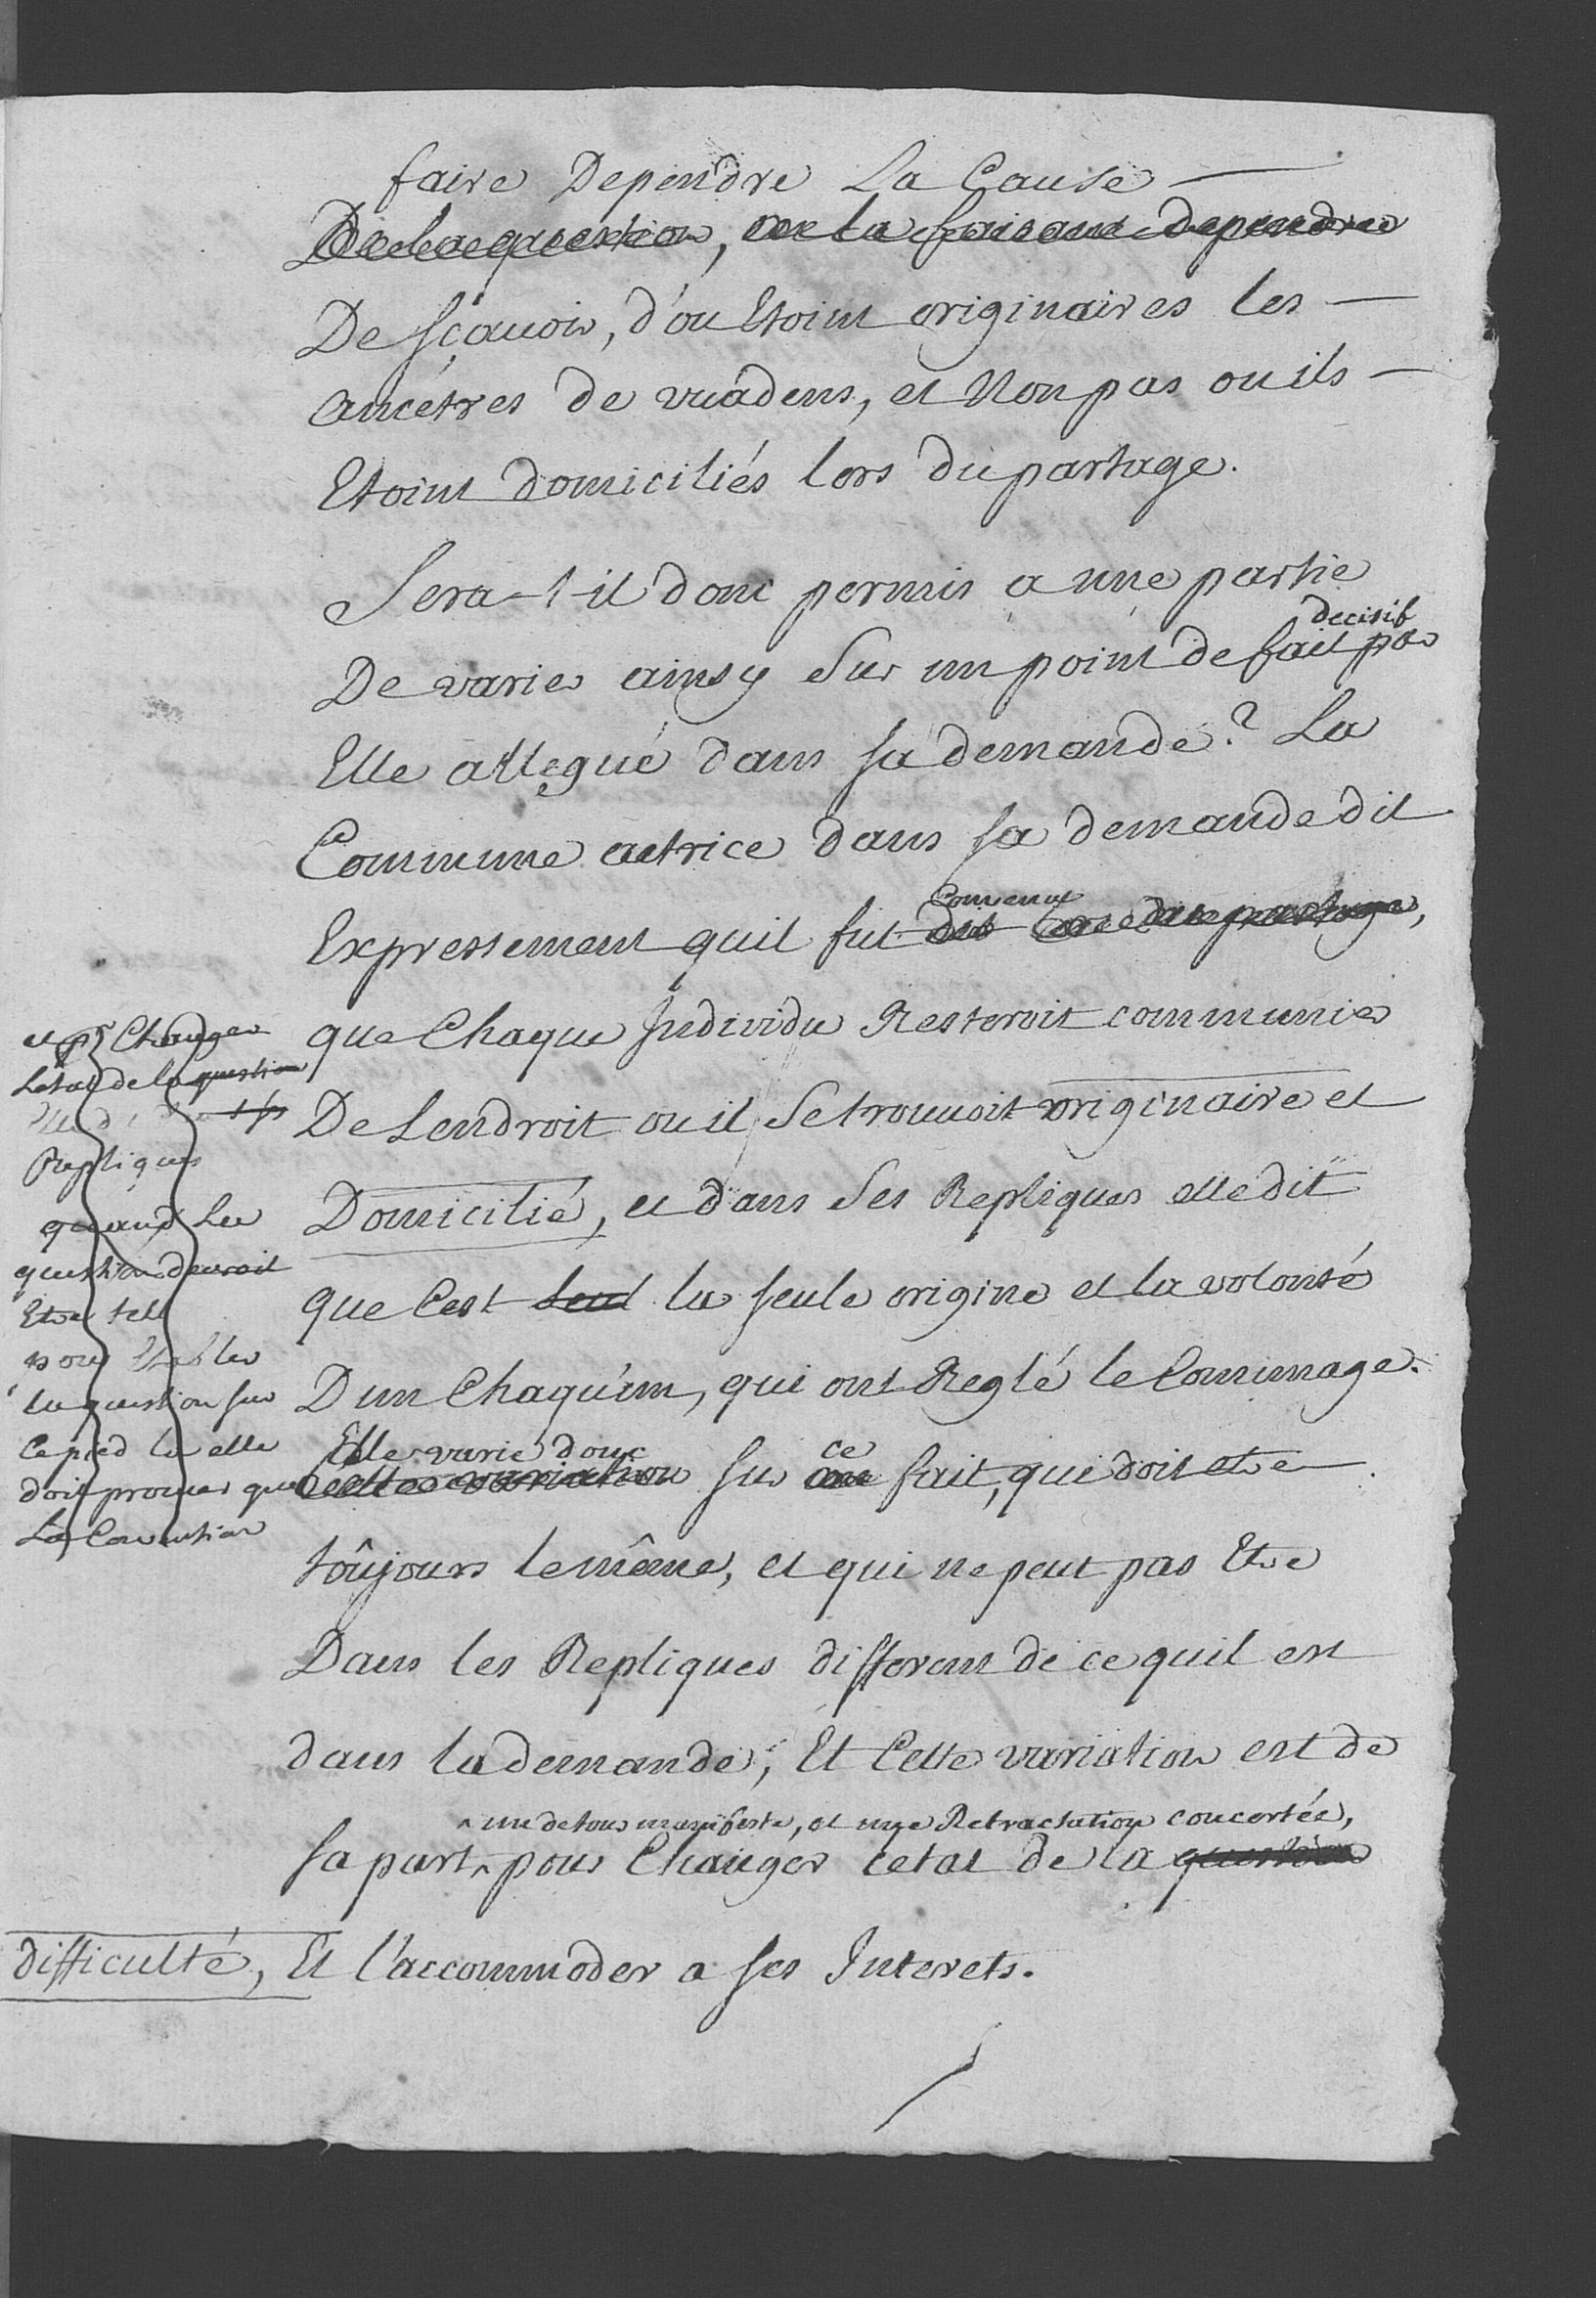 faire Dependre La Cause
De la question, en la faisant dependre
De sçavoir, d'ou Etoint originaires les
ancétres de vuadens, et Non pas ou ils
Etoint domiciliés lors du partage.
Sera-t-il donc permis a une partie
decisif
De varier ainsy Sur un point de fait par
Elle allegué dans sa demande? La
Commune actrice dans sa demande dit
Convenu
Expressement quil fut dit lors du partage,
que Chaque Individu Resteroit communier
De Lendroit ou il Se trouvoit originaire et
Domicilié, et dans Ses Repliques elle dit
que Cest la seule origine et la volonté
D'un Chaqu'un, qui ont Reglé le Communage.
Elle varie donc ce
Cette variation sur un fait, qui doit etre
toûjours le même, et qui ne peut pas Etre
Dans les Repliques different de ce quil est
dans la demande, Et Cette variation est de
un detour manifeste, et une Retractation concertée,
sa part pour Changer letat de la question
difficulté, Et l'accommoder a ses Interets.
et pr Changer
Letat de la question
Repliques
quand La
question devroit
Etre telle
pour Etablir
la question sur
ce pied la elle
doit prouver que
La Convention